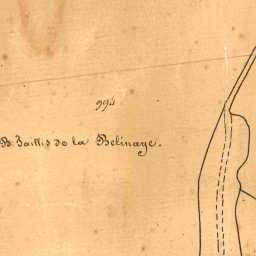 994
B. Taillis de la Belinaye.